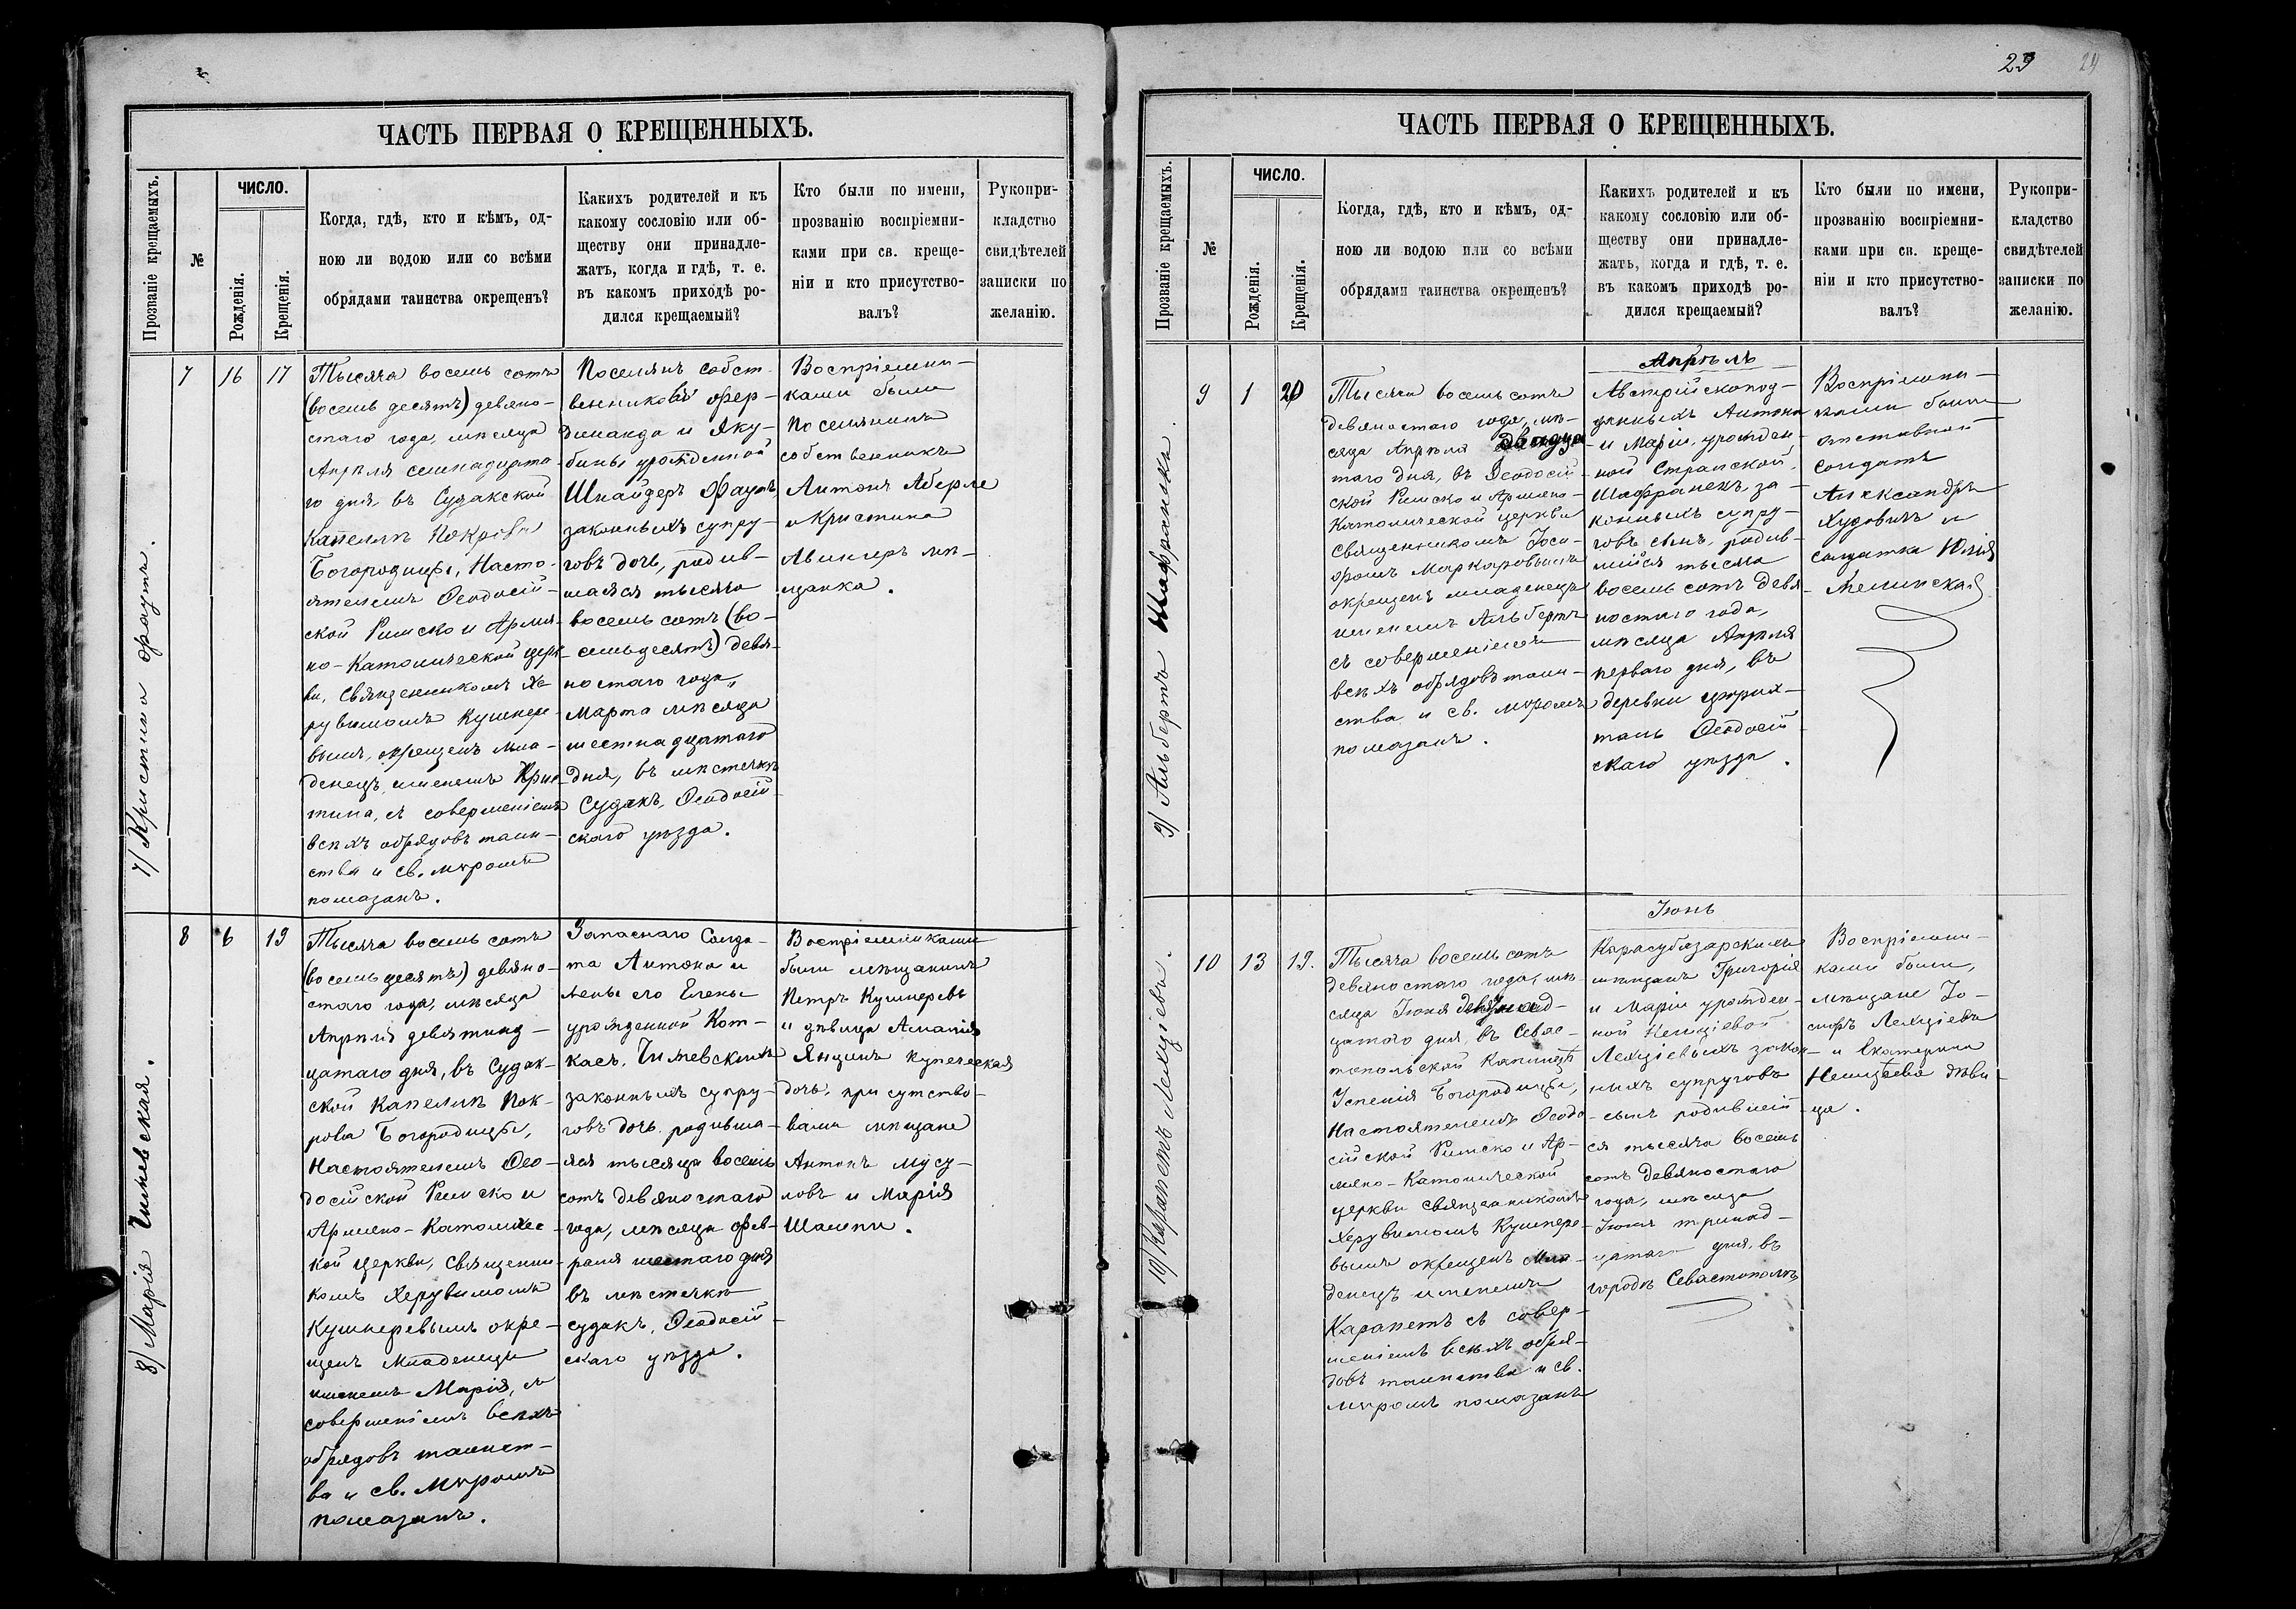 ЧАСТЬ ПЕРВАЯ О КРЕЩЕННЫХЪ.
Прозваніе крещаемыхъ.
№
ЧИСЛО.
Рожденія.
Крещенія.
Когда, гдѣ, кто и кѣмъ, од-
ною ли водою или со всѣми
обрядами таинства окрещенъ?
Какихъ родителей и къ
какому сословію или об-
ществу они принадле-
жатъ, когда и гдѣ, т. е.
въ какомъ приходѣ ро-
дился крещаемый?
Кто были по имени,
прозванію воспріемни-
ками при св. креще-
ніи и кто присутство-
валъ?
Рукопри-
кладство
свидѣтелей
записки по
желанію.
7) Кристина Фаутъ.
7
16
17
Тысяча восемь сотъ
(восемь десятъ) девяно-
стаго года, мѣсяца
Апрѣля семнадцата-
го дня, въ Судакской
Капеллѣ Покрова
Богородицы, Насто-
ятелемъ Ѳеодосій-
ской Римско и Армя-
но-Католической церк-
ви, Священникомъ Хе-
рувимомъ Кушнере-
вымъ, окрещенъ мла-
денецъ именемъ Крис-
тина, съ совершеніемъ
всѣхъ обрядовъ таин-
ства и св. мѵромъ
помазанъ.
Поселянъ собст-
венниковъ Фер-
динанда и Яку-
бины урожденной
Шнайдеръ Фаутъ,
законныхъ супру-
говъ дочь, родив-
шаяся тысяча
восемь сотъ (во-
семьдесятъ) девя-
ностаго года,
Марта мѣсяца
шестнадцатаго
дня, въ мѣстечкѣ
Судакъ, Ѳеодосій-
скаго уѣзда.
Воспріемни-
ками были
поселянинъ
собственникъ
Антонъ Аберле
и Кристина
мѣ-
щанка.
8) Марія Чижевская.
8
6
19
Тысяча восемь сотъ
(восемь десятъ) девяно-
стаго года, мѣсяца
Апрѣля девятнад-
цатаго дня, въ Судак-
ской Капеллѣ Пок-
рова Богородицы,
Настоятелемъ Ѳео-
досійской Римско и
Армяно-Католичес-
кой церкви, Священни-
комъ Херувимомъ
Кушнеревымъ окре-
щенъ младенецъ
именемъ Марія, съ
совершеніемъ всѣхъ
обрядовъ таинст-
ва и св. Мѵромъ
помазанъ.
Запаснаго Солда-
та Антона и
жены его Елены
урожденной Кот-
касъ, Чижевскихъ
законныхъ супру-
говъ дочь родивша-
яся тысяча восемь
сотъ девяностаго
года, мѣсяца Фев-
раля шестаго дня
въ мѣстечкѣ
Судакъ, Ѳеодосій-
скаго уѣзда.
Воспріемниками
были мѣщанинъ
Петръ Кушнеревъ
и дѣвица Амалія
купеческая
дочь, присутство-
вали мѣщане
Антонъ
и Марія
ЧАСТЬ ПЕРВАЯ О КРЕЩЕННЫХЪ.
23
24
Прозваніе крещаемыхъ.
№
ЧИСЛО.
Рожденія.
Крещенія.
Когда, гдѣ, кто и кѣмъ, од-
ною ли водою или со всѣми
обрядами таинства окрещенъ?
Какихъ родителей и къ
какому сословію или об-
ществу они принадле-
жатъ, когда и гдѣ, т. е.
въ какомъ приходѣ ро-
дился крещаемый?
Кто были по имени,
прозванію воспріемни-
ками при св. креще-
ніи и кто присутство-
валъ?
Рукопри-
кладство
свидѣтелей
записки по
желанію.
9) Альбертъ Шафранекъ.
9
1
20
Тысяча восемь сотъ
девяностаго года, мѣ-
сяца Апрѣля двадца-
таго дня, въ Ѳеодосій-
ской Римско и Армяно-
Католической церкви
священникомъ Іоси-
фомъ Маркаровымъ
окрещенъ младенецъ
именемъ Альбертъ
съ совершеніемъ
всѣхъ обрядовъ таин-
ства и св. мѵромъ
помазанъ.
Апрѣль
Австрійскопод-
данныхъ Антона
и Маріи, урожден-
ной Странской,
Шафранекъ, за-
конныхъ супру-
говъ сынъ, родив-
шійся тысяча
восемь сотъ девя-
ностаго года,
мѣсяца Апрѣля
перваго дня, въ
деревни
Ѳеодосій-
скаго уѣзда.
Воспріемни-
ками были
отставной
солдатъ
Александръ
Худовичъ и
солдатка Юлія
10) Карапетъ Лехціевъ.
10
13
19.
Тысяча восемь сотъ
девяностаго года, мѣ-
сяца Іюня девятнад-
цатаго дня, въ Севас-
топольской Каплицѣ
Успенія Богородицы,
Настоятелемъ Ѳеодо-
сійской Римско и Ар-
мяно-Католической
церкви Священникомъ
Херувимомъ Кушнере-
вымъ окрещенъ мла-
денецъ именемъ
Карапетъ съ совер-
шеніемъ всѣхъ обря-
довъ таинства и св.
мѵромъ помазанъ
Іюнь
Карасубазарскихъ
мѣщанъ Григорія
и Маріи урожден-
ной Немціевой
Лехціевыхъ закон-
ныхъ супруговъ
сынъ родившій-
ся тысяча восемь
сотъ девяностаго
года, мѣсяца
Іюня тринад-
цатаго дня, въ
городѣ Севастополѣ
Воспріемни-
ками были,
мѣщане Іо-
сифъ Лехціевъ
и Екатерина
дѣви-
ца.